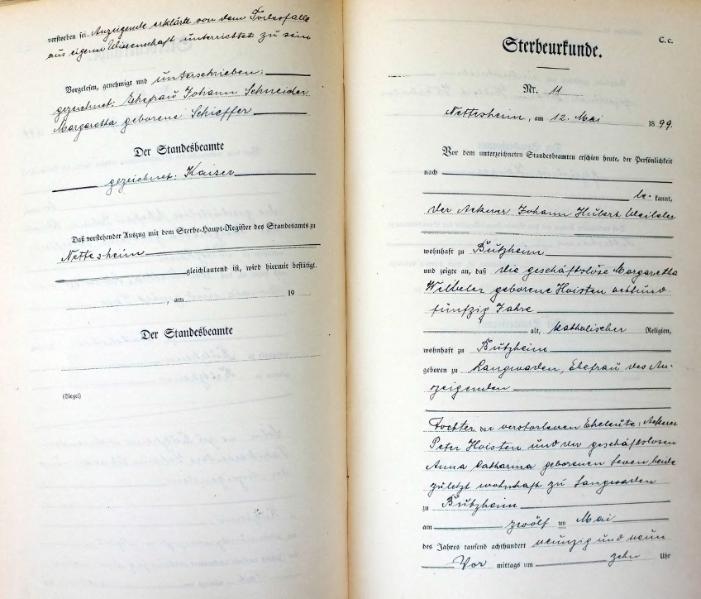 verstorben sei. Anzeigende erklärte von dem Sterbefalle
aus eigener Wissenschaft unterrichtet zu sein
Vorgelesen, genehmigt und unterschrieben:
gezeichnet: Ehefrau Johann Schneider
Margaretta geborene Schieffer
Der Standesbeamte
gezeichnet: Kaiser
Daß vorstehender Auszug mit dem Sterbe-Haupt-Register des Standesamts zu
Nettesheim
gleichlautend ist, wird hiermit bestätigt.
, am 19
Der Standesbeamte
(Siegel)
C. c.
Sterbeurkunde.
Nr. 11
Nettesheim, am 12. Mai 1899.
Vor dem unterzeichneten Standesbeamten erschien heute, der Persönlichkeit
nach
be- kannt,
der Ackerer Johann Hubert
wohnhaft zu Butzheim
und zeigte an, daß die geschäftslose Margaretta
geborene Hoisten achtund
fünfzig Jahre
alt, katholischer Religion,
wohnhaft zu Butzheim
geboren zu Langwaden, Ehefrau des An-
zeigenden
Tochter der verstorbenen Eheleute, Ackerer
Peter Hoisten und der geschäftslosen
Anna Catharina geborenen beide
zuletzt wohnhaft zu Langwaden
zu Butzheim
am zwölften Mai
des Jahres tausend achthundert neunzig und neun
Vor mittags um zehn Uhr